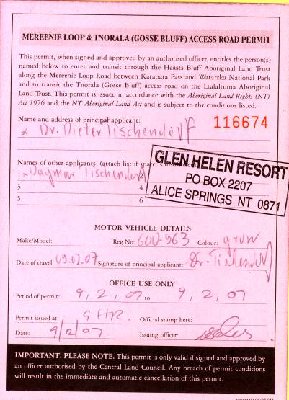 MEREENIE LOOP & TNORALA (GOSSE BLUFF) ACCESS ROAD PERMIT
This permit, when signed and approved by an authorised officer entitles the person(s)
named below to enter and transit through the Haasts Bluff Aboriginal Land Trust
along the Mereenie Loop Road between Katanata Pass and Watarrka National Park
and to transit the Tnorala (Gosse Bluff) access road on the Ltalaltuma Aboriginal
Land Trust. This permit is issued in accordance with the Aboriginal Land Rights (NT)
Act 1976 and the NT Aboriginal Land Act and is subject to the conditions listed.
Name and address of principal applicant:
116674
Dr. Dieter Tischendorff
Names of other applicants (attach list if
Dagmar Tischendorff
GLEN HELEN RESORT
PO BOX 2207
ALICE SPRINGS NT 0871
MOTOR VEHICLE DETAILS
Make/Model: Reg No: 600 963 Colour:
Date of travel 09.02.07 Signature of principal applicant:
OFFICE USE ONLY
Period of permit: 9, 2, 07 to 9, 2, 07
Permit issued at Official stamp here:
Date: 9/2/07 Issuing officer:
IMPORTANT PLEASE NOTE: This permit is only valid if signed and approved by
an officer authorised by the Central Land Council. Any breach of permit conditions
will result in the immediate and automatic cancellation of this permit.